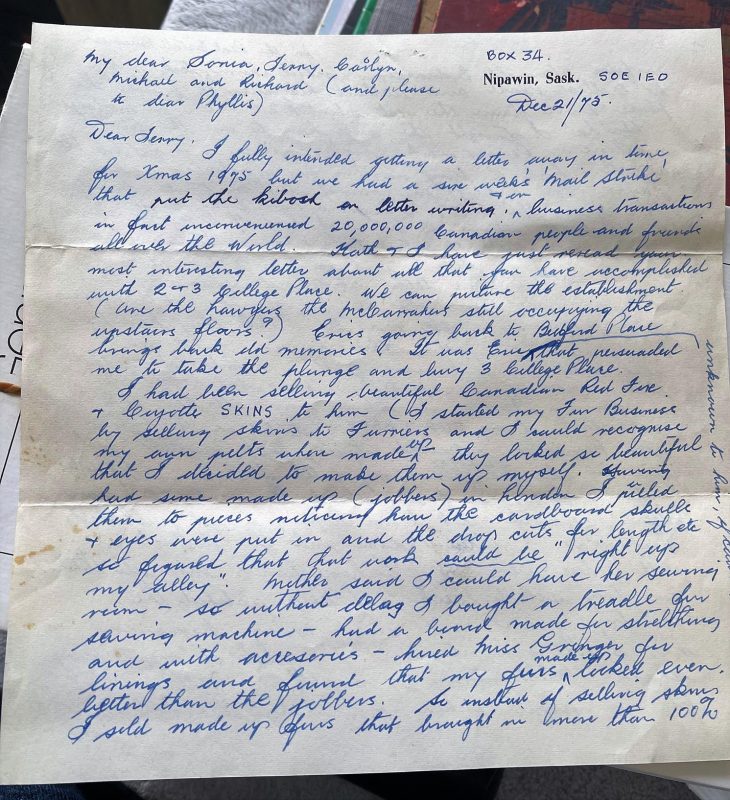 My dear Sonia, Terry, Carlyn,
Michael and Richard (and please
to dear Phyllis)
BOX 34.
Nipawin, Sask. SOE 1EO
Dec 21/75.
Dear Terry, I fully intended getting a letter away in time
for Xmas 1975 but we had a six week's 'Mail Strike'
that put the kibosh on letter writing & on business transactions
in fact inconvenienced 20,000,000 Canadian people and friends
all over the world. Kath & I have just reread your
most interesting letter about all that you have accomplished
with 2 & 3 College Place. We can picture the establishment
(are the Sawyers the McCarrahers still occupying the
upstairs floors?) Erics going back to Bedford Place
brings back old memories. It was Eric that persuaded
me to take the plunge and buy 3 College Place.
I had been selling beautiful Canadian Red Fox
& Coyotte SKINS to him (I started my Fur Business
by selling skins to Furriers and I could recognise
my own pelts when made up they looked so beautiful
that I decided to make them up myself. Having
had some made up (jobbers) in London I pulled
them to pieces noticing how the cardboard skulls
& eyes were put in and the drop cuts for length etc
so figured that that work could be "right up
my alley". Mother said I could have her sewing
room - so without delay I bought a treadle fur
sewing machine - had a board made for stretching
and with accesories - hired Miss Granger for
linings and found that my furs made up looked even
better than the jobbers. So instead of selling skins
I sold made up furs that brought in more than 100%
unknown to him, of